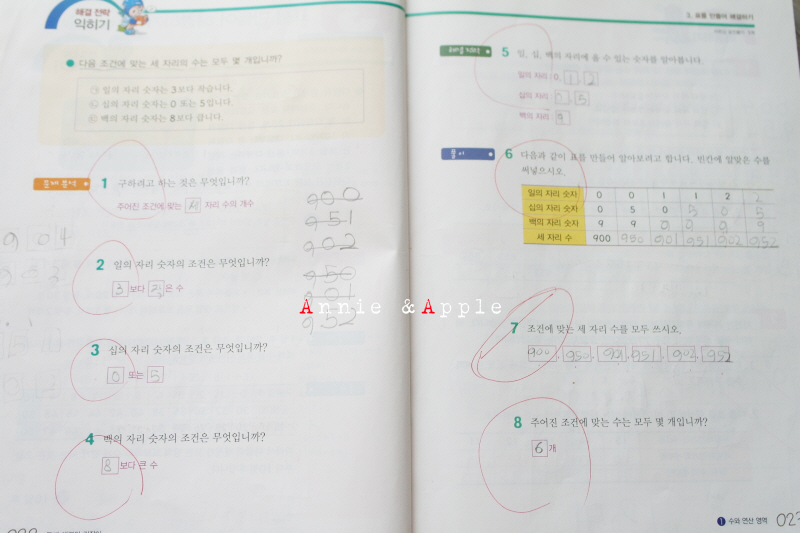 해결 전략
익히기
다음 조건에 맞는 세 자리의 수는 모두 몇 개입니까?
㉠ 일의 자리 숫자는 3보다 작습니다.
㉡ 십의 자리 숫자는 0 또는 5입니다.
㉢ 백의 자리 숫자는 8보다 큽니다.
문제 분석
1 구하려고 하는 것은 무엇입니까?
주어진 조건에 맞는 자리 수의 개수
2 일의 자리 숫자의 조건은 무엇입니까?
3 보다 은 수
3 십의 자리 숫자의 조건은 무엇입니까?
0 또는 5
4 백의 자리 숫자의 조건은 무엇입니까?
8 보다 큰 수
900
951
902
950
901
952
904
Annie & Apple
3. 표를 만들어 해결하기
해결 전략
5 일, 십, 백의 자리에 올 수 있는 숫자를 알아봅니다.
일의 자리: 0, 1, 2
십의 자리: 0, 5
백의 자리: 9
풀이
6 다음과 같이 표를 만들어 알아보려고 합니다. 빈칸에 알맞은 수를
써넣으시오.
일의 자리 숫자 0 0 1 1 2 2
십의 자리 숫자 0 5 0 5 0 5
백의 자리 숫자 9 9 9 9 9 9
세 자리 수 900 950 901 951 902 952
7 조건에 맞는 세 자리 수를 모두 쓰시오.
900, 950, 901, 951, 902, 952
8 주어진 조건에 맞는 수는 모두 몇 개입니까?
6 개
1 수와 연산 영역 023